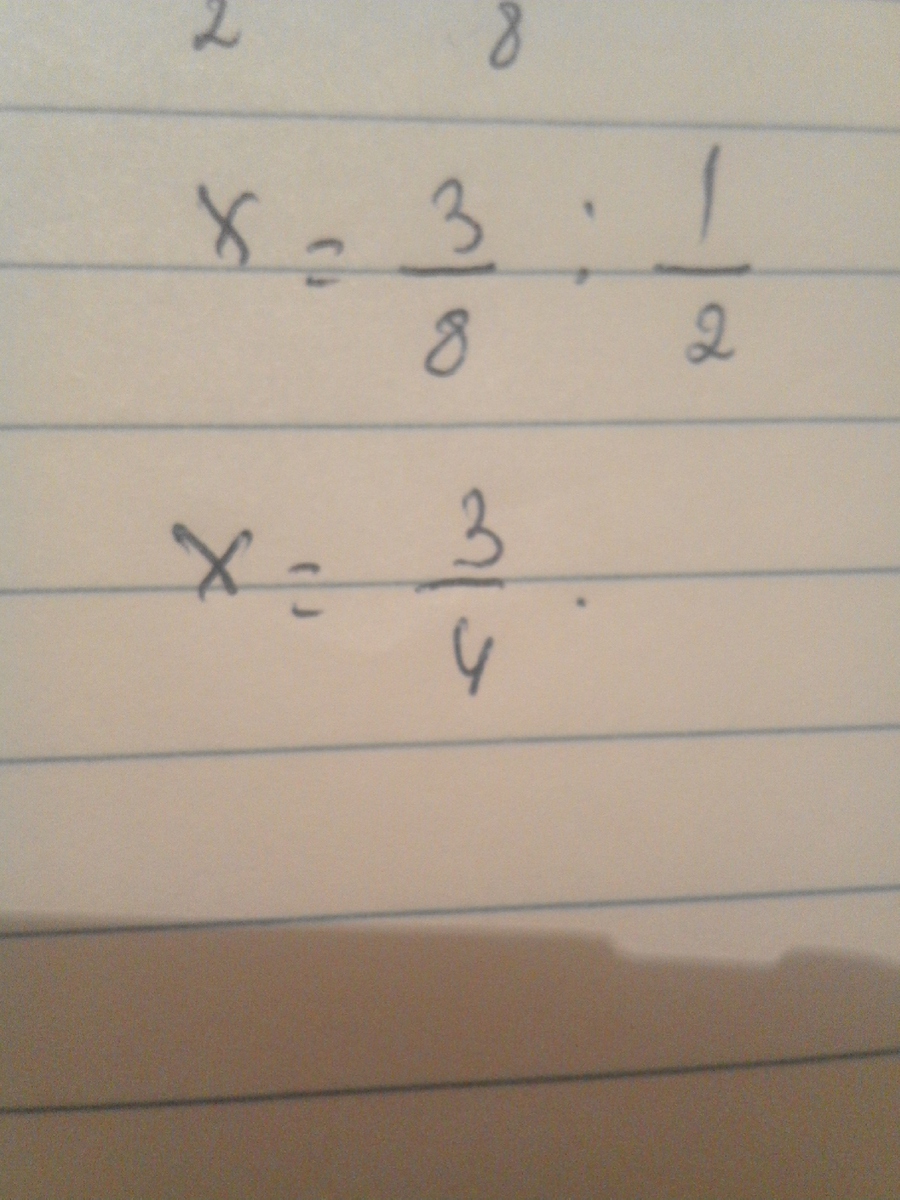 2 8
x = 3/8 : 1/2
x = 3/4 .